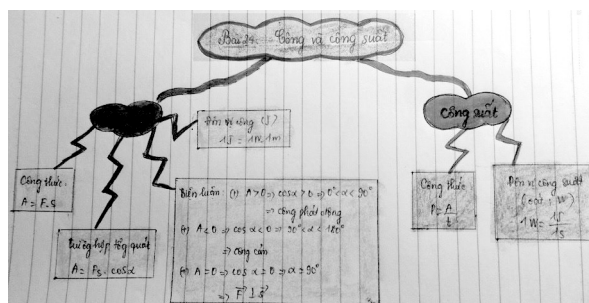 Bài 24. Công và công suất
Công suất
Đơn vị công (J)
1J = 1N.1m
Công thức.
A = F.s
Trường hợp tổng quát
A = Fs. cosα
Biện luận: (+) A > 0 => cosα > 0 => 0° < α < 90°
=> Công phát động
(+) A < 0 => cos α < 0 => 90° < α < 180°
=> Công cản
(+) A = 0 => cos α = 0 => α = 90°
=> F ⊥ s
Công thức
P = A/t
Đơn vị công suất
(oát; W)
1W = 1J/1s